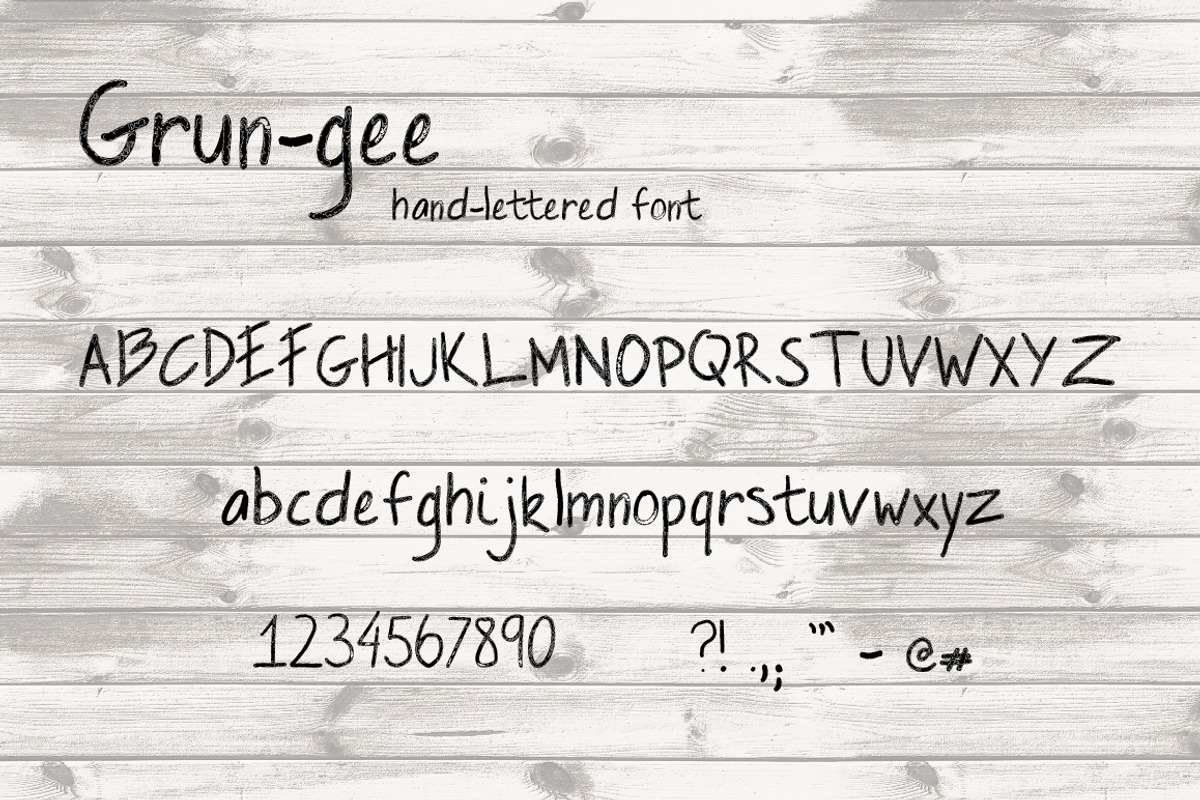 Grun-gee
hand-lettered font
ABCDEFGHIJKLMNOPQRSTUVWXYZ
abcdefghijklmnopqrstuvwxyz
1234567890 ?! .,; '" - @#